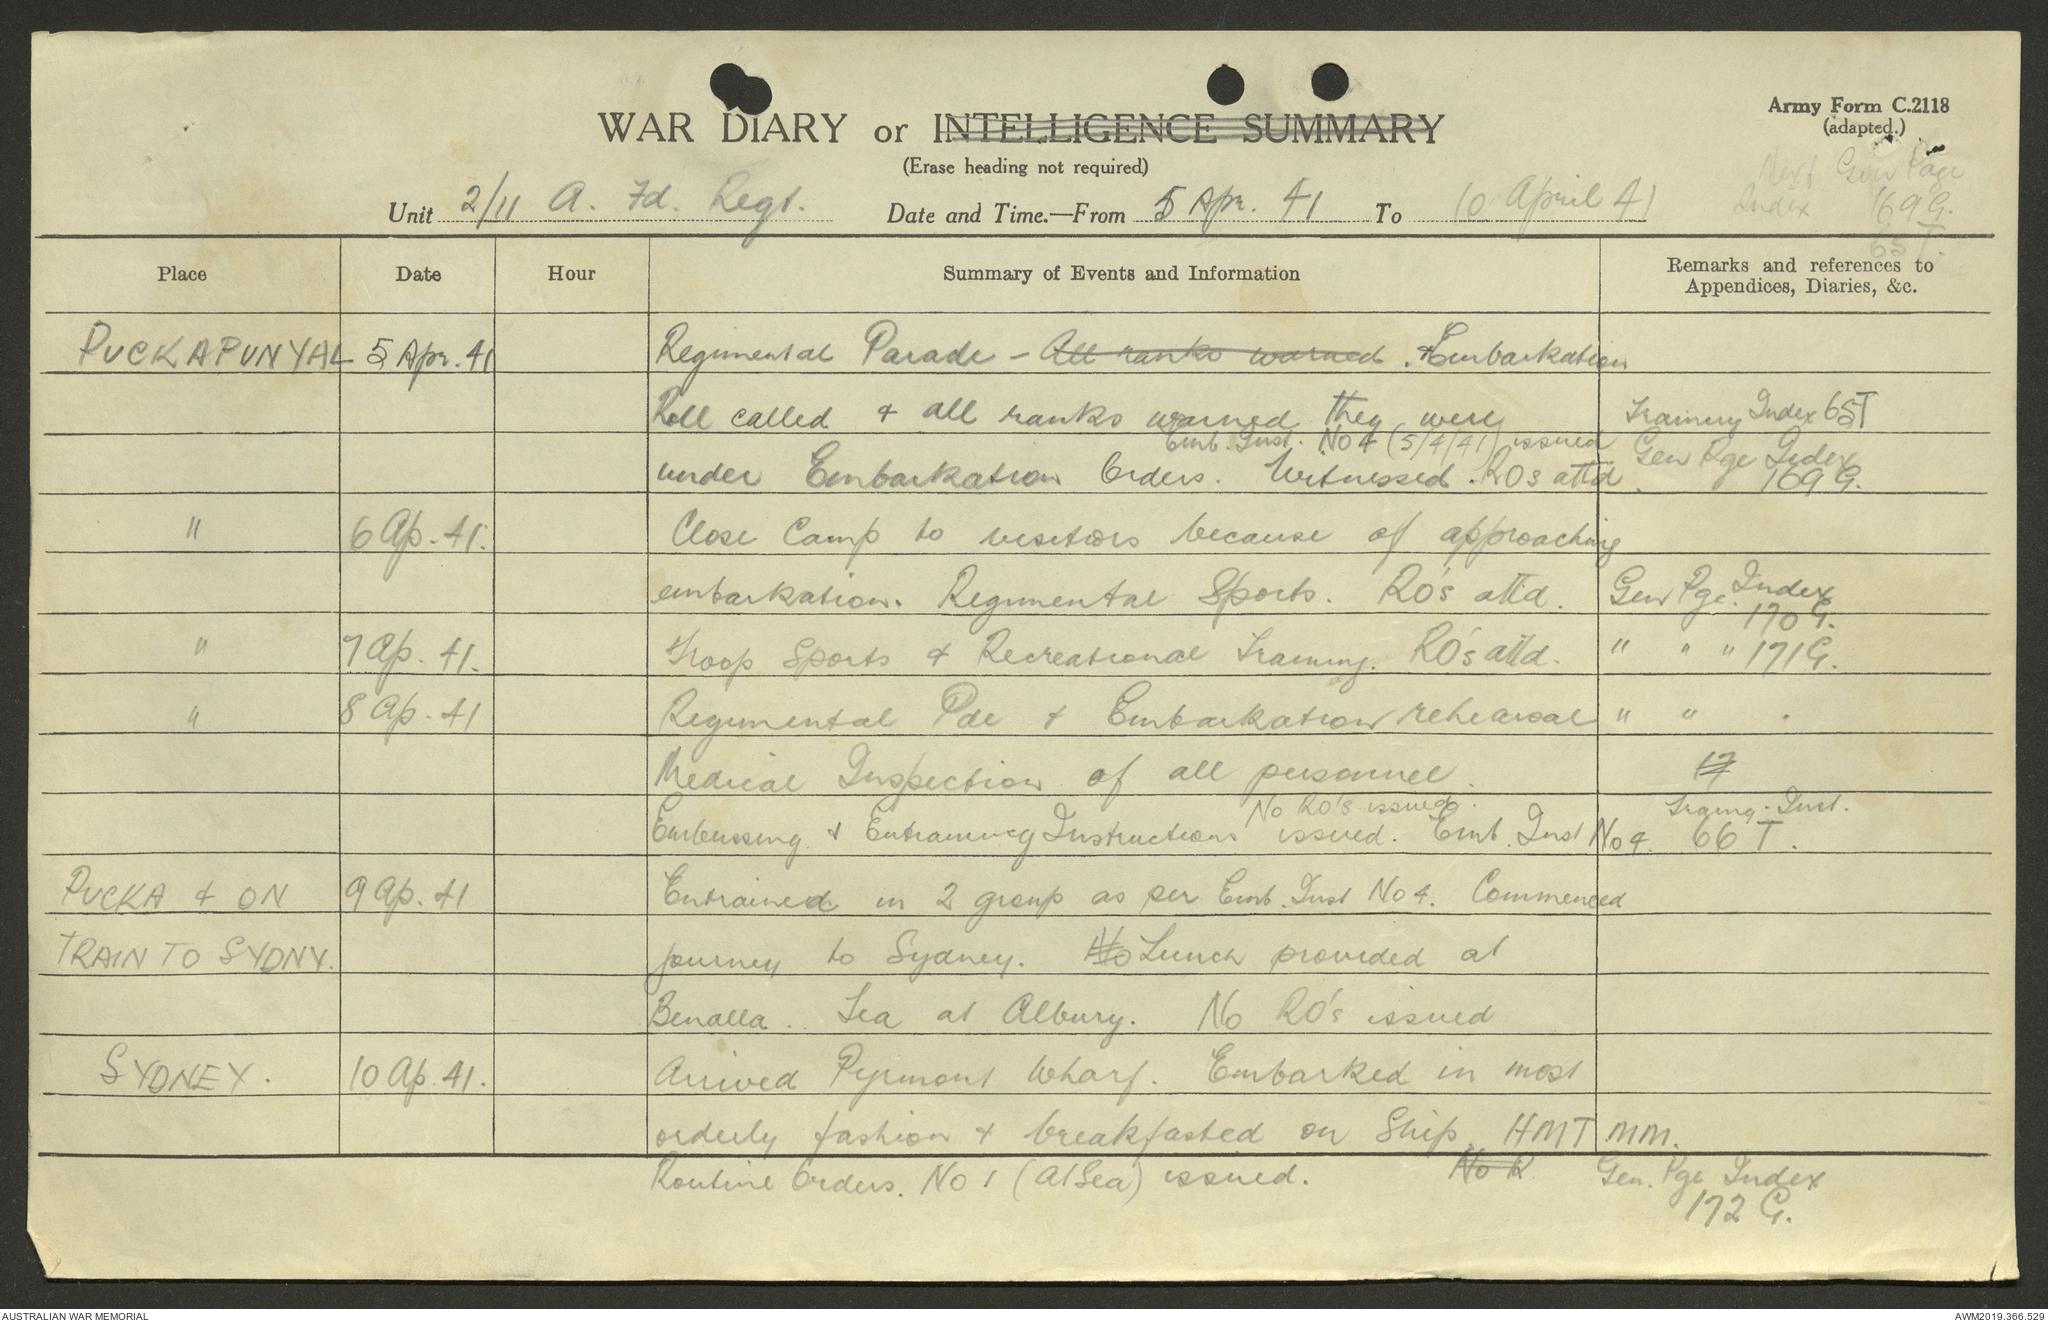 Army Form C.2118
(adapted.)
WAR DIARY or INTELLIGENCE SUMMARY
(Erase heading not required)
Next Gen Page
Index 169G.
65T.
Unit 2/11 A. Fd. Regt. Date and Time.—From 5 Apr. 41 To 10 April 41
Place Date Hour Summary of Events and Information Remarks and references to
Appendices, Diaries, &c.
PUCKAPUNYAL 5 Apr. 41 Regimental Parade – All ranks warned. & Embarkation
Roll called & all ranks warned they were Training Index 65T
Emb. Inst. No 4 (5/4/41) issued Gen Pge Index
under Embarkation Orders. Witnessed. ROs attd. 169G.
" 6 Ap. 41. Close Camp to visitors because of approaching
embarkation. Regimental Sports. RO's attd. Gen Pge. Index
170G.
" 7 Ap. 41. Troop Sports & Recreational Training. RO's attd. " " " 171G.
" 8 Ap. 41 Regimental Pde & Embarkation rehearsal " "
Medical Inspection of all personnel. 17
No RO's issued. Traing. Inst.
Embussing & Entraining Instructions issued. Emb. Inst No 4. 66T.
PUCKA & ON 9 Ap. 41 Entrained in 2 group as per Emb. Inst No 4. Commenced
TRAIN TO SYDNY. journey to Sydney. Lunch provided at
Benalla. Tea at Albury. No RO's issued
SYDNEY. 10 Ap. 41. Arrived Pyrmont Wharf. Embarked in most
orderly fashion & breakfasted on Ship. HMT MM.
Routine Orders. No 1 (At Sea) issued. No R Gen. Pge Index
172 G.
AUSTRALIAN WAR MEMORIAL AWM2019.366.529